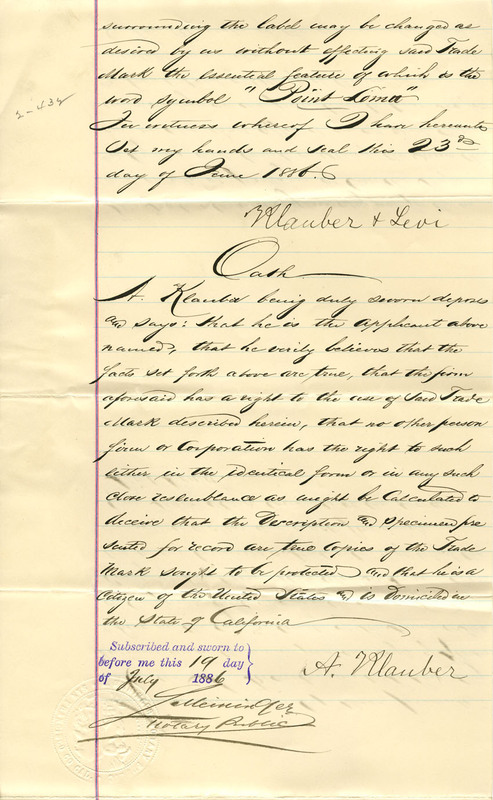 surrounding the label may be changed as
desired by us without effecting said Trade
Mark the essential feature of which is the
word symbol "Point Loma"
2-432
In witness whereof I have hereunto
set my hands and seal this 23rd
day of June 1886.
Klauber & Levi
Oath
A. Klauber being duly sworn deposes
and says: that he is the applicant above
named, that he verily believes that the
facts set forth above are true, that the firm
aforesaid has a right to the use of said Trade
Mark described herein, that no other person
firm or Corporation has the right to such
either in the identical form or in any such
close resemblance as might be Calculated to
deceive that the Description and specimen pre
sented for record are true copies of the Trade
Mark sought to be protected and that he is a
Citizen of the United States and is Domiciled in
the State of California
Subscribed and sworn to
before me this 19 day
of July 1886
A. Klauber
Notary Public